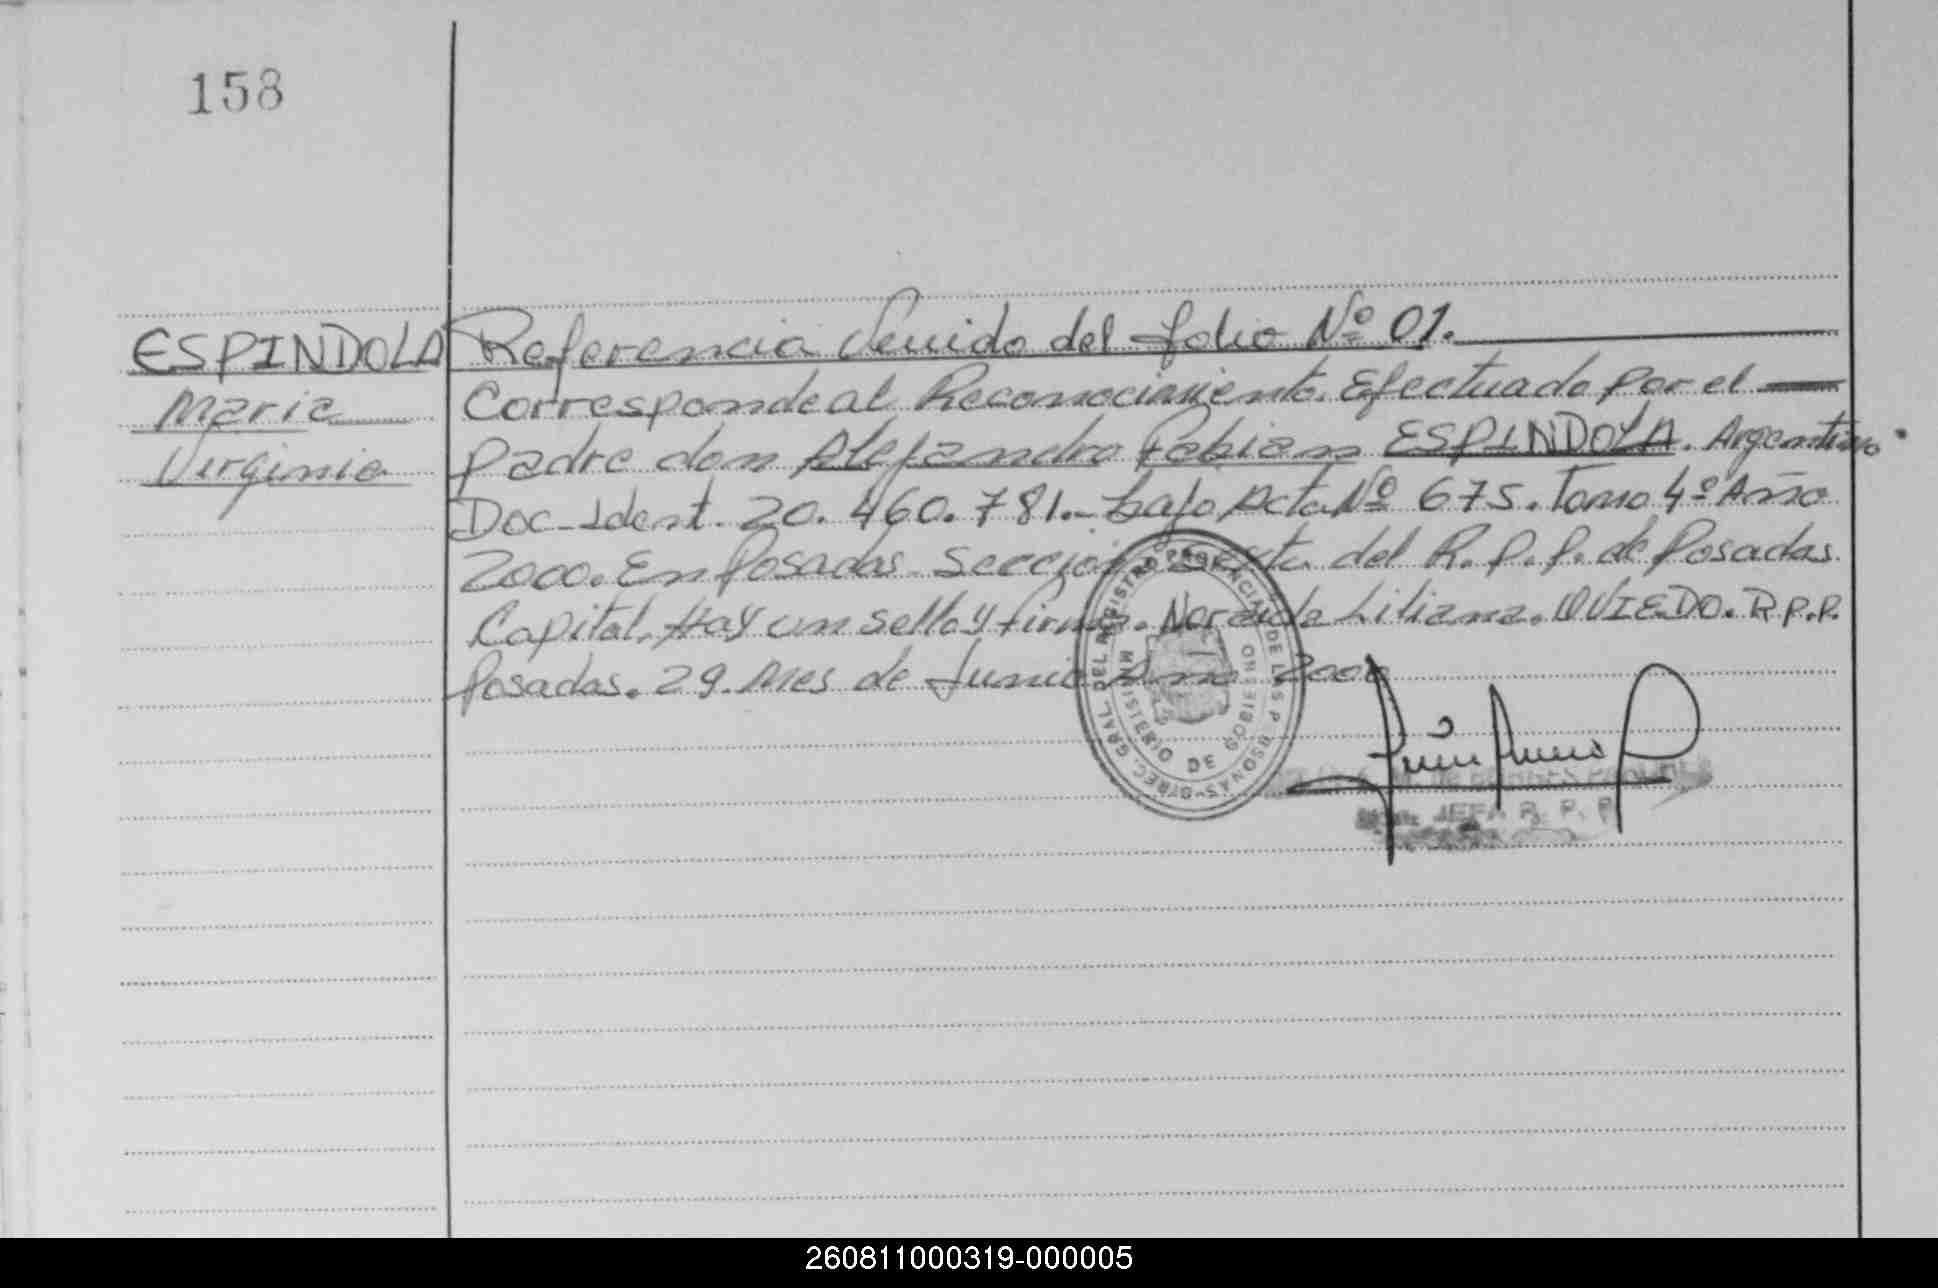 158
ESPINDOLA
Maria
Virginia
Referencia Venido del folio Nº 01.
Corresponde al Reconocimiento. Efectuado por el
padre don Alejandro Fabian ESPINDOLA. Argentino.
Doc-Ident. 20.460.781.- bajo Acta Nº 675. Tomo 4º Año
2000. En Posadas. Sección Sexta del R.P.P. de Posadas
Capital. Hay un sello y firma. Noraida Liliana. OVIEDO. R.P.P.
Posadas. 29. Mes de Junio Año 2000
DIREC. GRAL. DEL REGISTRO PROVINCIAL DE LAS PERSONAS
MINISTERIO DE GOBIERNO
JEFA R. P. P.
260811000319-000005